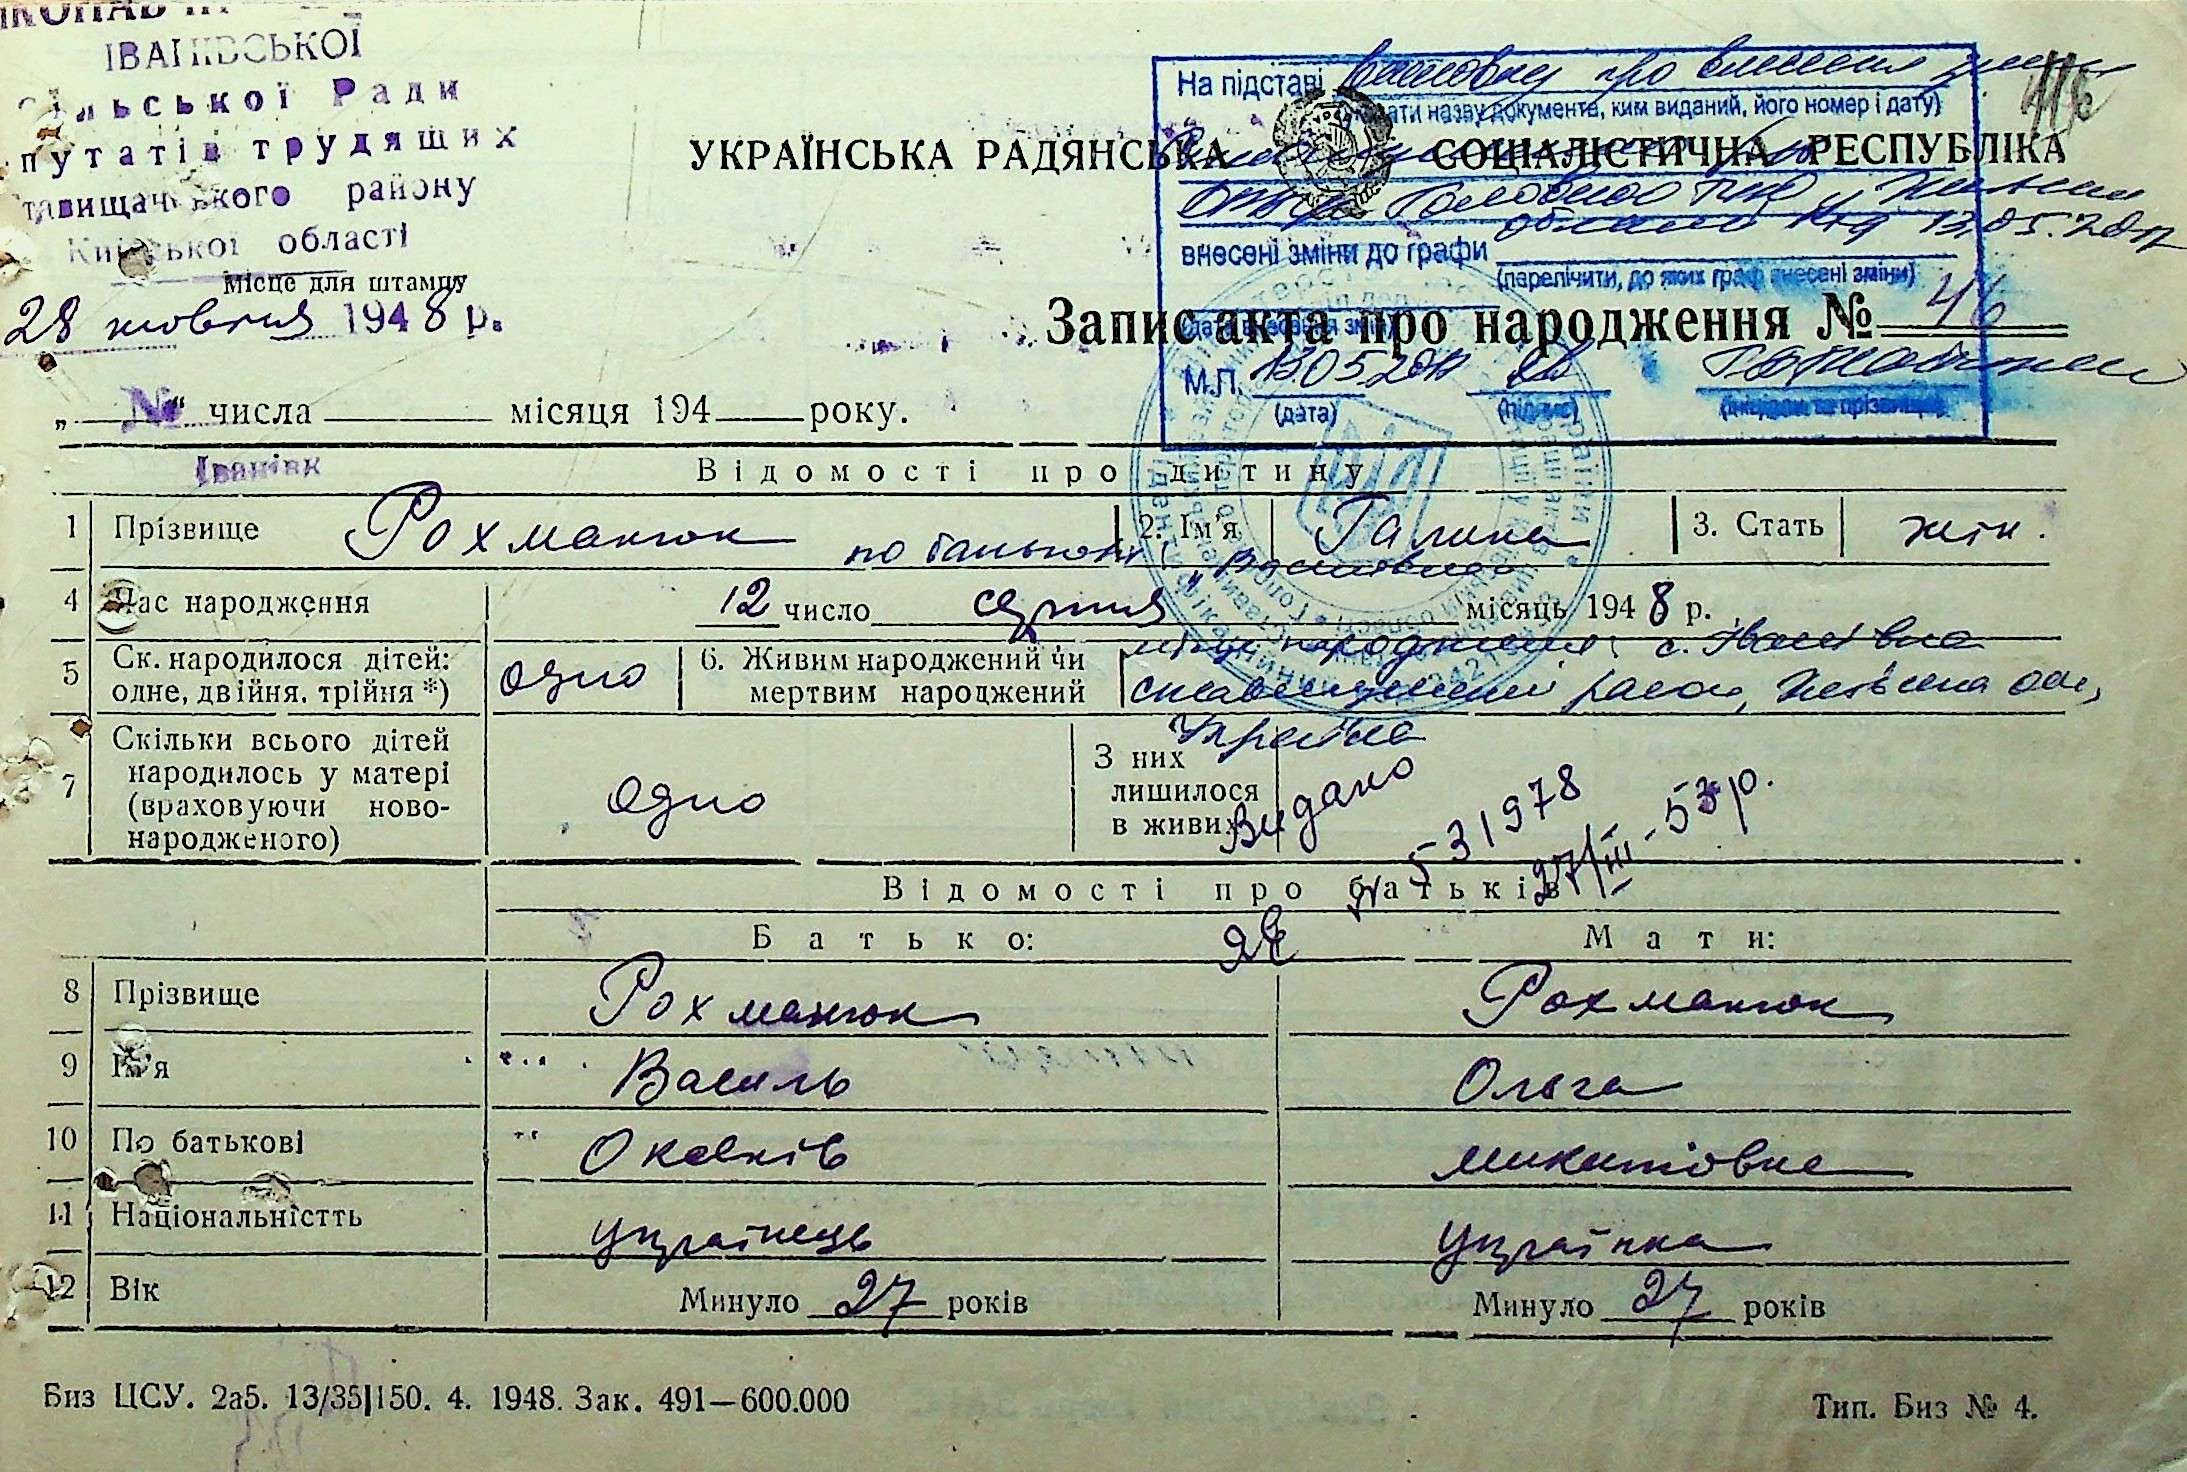 ІВАНІВСЬКОЇ
сільської Ради
депутатів трудящих
Ставищанського району
Київської області
Місце для штампу
28 жовтня 1948 р.
На підставі висновку про внесення змін
(вказати назву документа, ким виданий, його номер і дату)
УКРАЇНСЬКА РАДЯНСЬКА СОЦІАЛІСТИЧНА РЕСПУБЛІКА
області від 13.05.2017
внесені зміни до графи
(перелічити, до яких граф внесені зміни)
(дата внесення змін)
Запис акта про народження № 46
М.П. 13.05.2017
(дата) (підпис) (ініціали та прізвище)
„ “ числа місяця 194 року.
Іванівк
Відомості про дитину
1 Прізвище Рохманюк 2. Ім'я Галина 3. Стать жін.
по батькові „Василівна
4 Час народження 12 число серпня місяць 1948 р.
місце народження: с. Іванівка
5 Ск. народилося дітей: одно 6. Живим народжений чи
одне, двійня, трійня *) мертвим народжений
Ставищенський район, Київська обл.,
Україна
7 Скільки всього дітей народилось у матері (враховуючи ново-народженого) одно З них лишилося в живих
Видано
531978
27/III-53р.
Відомості про батьків
Батько: Мати:
8 Прізвище Рохманюк Рохманюк
9 Ім'я Василь Ольга
10 По батькові Микитовна
11 Національністть українець українка
12 Вік Минуло 27 років Минуло 27 років
Биз ЦСУ. 2аб. 13/35|150. 4. 1948. Зак. 491—600.000 Тип. Биз № 4.